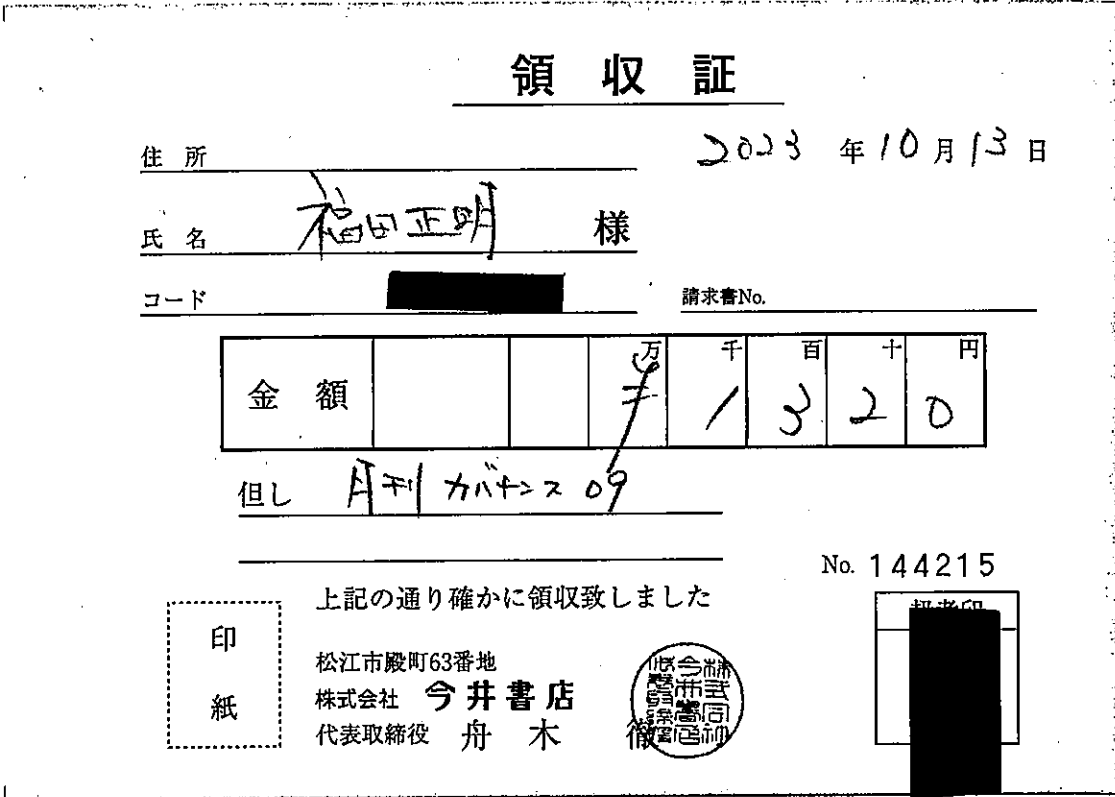 領収証
2023年10月13日
住所
氏名 福田正明 様
コード
請求書No.
金額 万千百十円
¥1320
但し 月刊ガバナンス09
No. 144215
上記の通り確かに領収致しました
印紙
松江市殿町63番地
株式会社 今井書店
代表取締役 舟木 徹